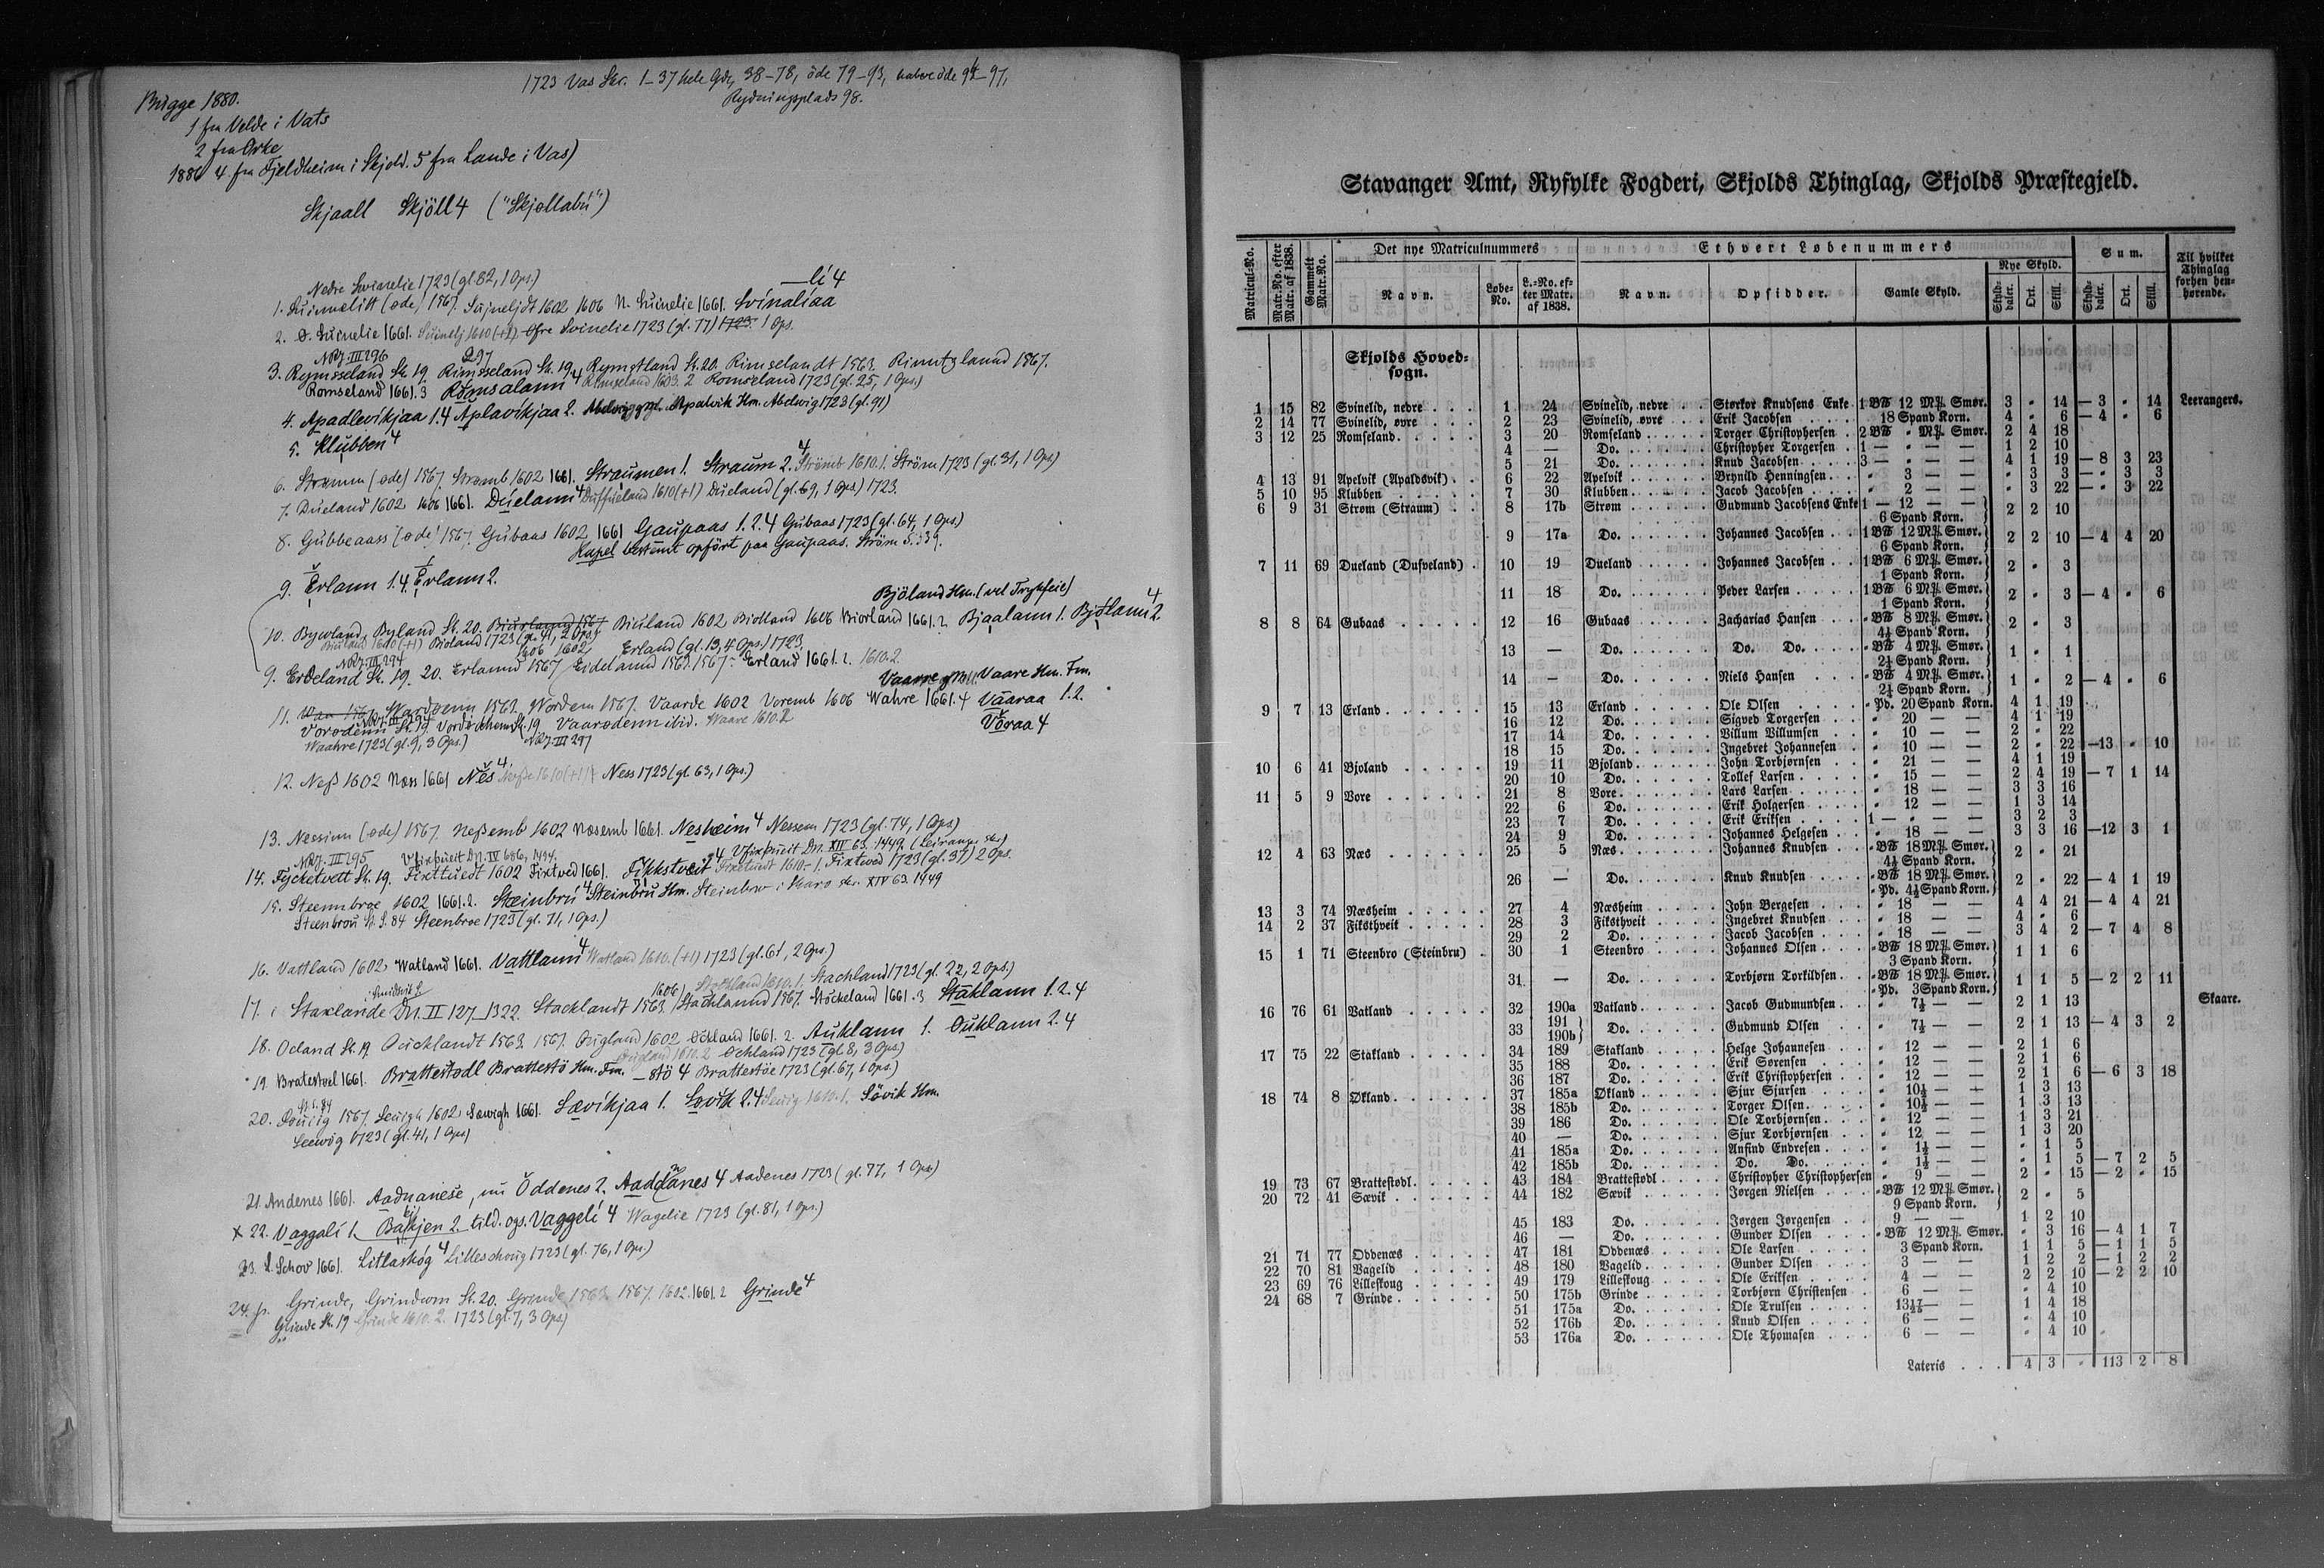 1723 Vas Skr. 1–37 hele Gde, 38–78, öde 79–93, halve öde 94–97,
Rydningsplads 98.
Bugge 1880.
1 fra Velde i Vats
2 fra Ørke
1886 4. fra Fjeldheim i Skjold. 5 fra Lande i Vas)
Skjaall Skjöll 4 ("Skjøllabú")
Nedre Svinelie 1723 (gl. 82, 1 Ops.)
—lí 4
1. (øde) 1567. 1602 1606 N. Suinelie 1661. Svínalíaa
2. Ø. Suinelie 1661. Øfre Svinelie 1723 (gl. 77) 1723. 1 Ops.
NRJ. III 296 297
3. Rymsseland St. 19. Rimsseland St. 19. Rymgtland St. 20. Rimselandt 1563. Rimtzlannd 1567.
Romseland 1661. 3 Rømsalann 4 Romseland 1603. 2 Romseland 1723 (gl. 25, 1 Ops.)
4. Apadlevikjaa 1.4 Aplavíkjaa 2. Apalvik Hm. Abelwig 1723 (gl. 91)
5. Klubben 4
6. Strømm (øde) 1567. Strømb 1602 1661. Straumen 1. Straum 2. 4 Strömb 1610. 1. Ström 1723 (gl. 31, 1 Ops)
7. Dueland 1602 1606 1661. Dúelann 4 Duffueland 1610 (+1) Dueland (gl. 69, 1 Ops.) 1723.
8. Gubbeaass (øde) 1567. Gubaas 1602 1661 Gaupaas 1.2.4 Gubaas 1723 (gl. 64, 1 Ops.)
Kapel bestemt opført paa Gaupaas. Ström S. 539.
9. Erlann 1.4 Erlann 2.
Bjöland Hm. (vel Trykfeil)
10. Bywland, Byland St. 20. Biuland 1602 Biolland 1606 Biorland 1661. 2. Bjaalann 1. Bjølann 2. 4
Biuland 1610 (+1) Bioland 1723 (gl. 41, 2 Ops.)
1606 1602 Erland (gl. 13, 4 Ops) 1723.
NRJ. III 294
9. Erdeland St. 19. 20. Erlannd 1567 Eidelannd 1563. 1567. Erland 1661. 2. 1610. 2.
Vaare Hm. Fm.
11. Wardenn 1563. Wordem 1567. Vaarde 1602 Voremb 1606 Wahre 1661. 4 Vaaraa 1.2.
Vorodenn St. 19 Vordochem St. 19 Vaarodenn ibid. Waare 1610. 2 Vöraa 4
Waahre 1723 (gl. 9, 3 Ops.) NRJ. III 297
12. Neß 1602 Næs 1661 Nes 4 Neße 1610 (+1) Ness 1723 (gl. 63, 1 Ops.)
13. Nessium (øde) 1567. Neßemb 1602 Næsemb 1661. Nesheim 4 Nessem 1723 (gl. 74, 1 Ops)
NRJ. III 295 Vfixþueit Dn. IV 686, 1434. Vfixþueit Dn. XIV 63. 1449. (Leirangs skr)
14. Fycketvett St. 19. Fixttuedt 1602 Fixtved 1661. Fikkstveit 4 Fixstuedt 1610. 1. Fixtved 1723 (gl. 37) 2 Ops.
15. Steennbroe 1602 1661. 2. Stæinbrú 4 Steinbru Hm. Steinbrw i Skaro skr. XIV 63. 1449
Steenbrou St. S. 84 Steenbroe 1723 (gl. 71, 1 Ops.)
16. Vattland 1602 Watland 1661. Vattlann 4 Watland 1610. (+1) 1723 (gl. 61, 2 Ops.)
1606 Stachland 1610. 1. Stachland 1723 (gl. 22, 2 Ops.)
17. i Staxlande Dn. II 127 1322. Stacklandt 1563. Stachlannd 1567. Stöckeland 1661. 3 Staklann 1.2.4
18. Ocland St. 19. Oucklandt 1563. 1567. Øugland 1602 Ockland 1661. 2. Auklann 1. Oúklann 2.4
Ougland 1610. 2 Ochland 1723 (gl. 8, 3 Ops.)
19. Bratestoel 1661. Brattestødl Brattestö Hm. Fm. —stö 4 Brattestöe 1723 (gl. 67, 1 Ops.)
St. S. 84
20. 1567. Seuigh 1602 Sæwigh 1661. Sævikjaa 1. Søvik 2.4 Sewig 1610. 1. Sövik Hm.
Seewig 1723 (gl. 41, 1 Ops)
21. Andenes 1661. Aadnanese, nu Öddenes 2. Aaddanes 4 Aadenes 1723 (gl. 77, 1 Ops)
× 22. Vaggalí 1. Bakkjen 2. tild. ogs. Vaggelí 4 Wagelie 1723 (gl. 81, 1 Ops.)
23. L. Schov 1661. Litlaskóg 4 Lilleschoug 1723 (gl. 76, 1 Ops.)
24. Grinde, Grindwm St. 20. Grinde 1563 1567. 1602. 1661. 2 Grinde 4
Grinde St. 19 Grinde 1610. 2. 1723 (gl. 7, 3 Ops)
Stavanger Amt, Ryfylke Fogderi, Skjolds Thinglag, Skjolds Præstegjeld.
Matricul-No. | Matr.No. efter Matr. af 1838. | Gammelt Matr.No. | Det nye Matriculnummers | Ethvert Løbenummers | Sum. | Til hvilket Thinglag forhen henhørende.
Navn. | Løbe-No. | L.-No. efter Matr. af 1838. | Navn. | Opsidder. | Gamle Skyld. | Nye Skyld. | Skylddaler. | Ort. | Skill. | Skylddaler. | Ort. | Skill.
Skjolds Hovedsogn.
1 15 82 Svinelid, nedre 1 24 Svinelid, nedre Størkor Knudsens Enke 1 B℔ 12 M℔ Smør. 3 " 14 — 3 " 14 Leerangers.
2 14 77 Svinelid, øvre 2 23 Svinelid, øvre Erik Jacobsen 18 Spand Korn. 4 " 6 — 4 " 6
3 12 25 Romseland 3 20 Romseland Torger Christophersen 2 B℔ " M℔ Smør. 2 4 18
4 — Do. Christopher Torgersen 1 — " — — 1 2 10
5 21 Do. Knud Jacobsen 3 — " — — 4 1 19 — 8 3 23
4 13 91 Apelvik (Apaldsvik) 6 22 Apelvik Brynild Henningsen " 3 — — " 3 3 — " 3 3
5 10 95 Klubben 7 30 Klubben Jacob Jacobsen " 2 — — " 3 22 — " 3 22
6 9 31 Strøm (Straum) 8 17b Strøm Gudmund Jacobsens Enke 1 — 12 — — 2 2 10
6 Spand Korn.
9 17a Do. Johannes Jacobsen 1 B℔ 12 M℔ Smør. 2 2 10 — 4 4 20
6 Spand Korn.
7 11 69 Dueland (Dufveland) 10 19 Dueland Johannes Jacobsen 1 B℔ 6 M℔ Smør. 2 " 3
1 Spand Korn.
11 18 Do. Peder Larsen 1 B℔ 6 M℔ Smør. 2 " 3 — 4 " 6
1 Spand Korn.
8 8 64 Gubaas 12 16 Gubaas Zacharias Hansen " B℔ 8 M℔ Smør. 2 " 3
4½ Spand Korn.
13 — Do. Do. Do. " B℔ 4 M℔ Smør. 1 " 1
2¼ Spand Korn.
14 — Do. Niels Hansen " B℔ 4 M℔ Smør. 1 " 2 — 4 " 6
2¼ Spand Korn.
9 7 13 Erland 15 13 Erland Ole Olsen " Pd. 20 Spand Korn. 4 1 19
16 12 Do. Sigved Torgersen " 20 — — 4 1 19
17 14 Do. Villum Villumsen " 10 — — 2 " 22
18 15 Do. Ingebret Johannesen " 10 — — 2 " 22 — 13 " 10
10 6 41 Bjoland 19 11 Bjoland John Torbjørnsen " 21 — — 4 1 19
20 10 Do. Tollef Larsen " 15 — — 2 4 19 — 7 1 14
11 5 9 Vore 21 8 Vore Lars Larsen " 18 — — 3 3 16
22 6 Do. Erik Holgersen " 12 — — 1 3 14
23 7 Do. Erik Eriksen 1 — " — — 3 2 3
24 9 Do. Johannes Helgesen " 18 — — 3 3 16 — 12 3 1
12 4 63 Næs 25 5 Næs Johannes Knudsen " B℔ 18 M℔ Smør. 2 " 21
4½ Spand Korn.
26 — Do. Knud Knudsen " B℔ 18 M℔ Smør. 2 " 22 — 4 1 19
" Pd. 4½ Spand Korn.
13 3 74 Næsheim 27 4 Næsheim John Bergesen " 18 — — 4 4 21 — 4 4 21
14 2 37 Fiksthveit 28 3 Fiksthveit Ingebret Knudsen " 18 — — 4 " 6
29 2 Do. Jacob Jacobsen " 18 — — 3 4 2 — 7 4 8
15 1 71 Steenbro (Steinbru) 30 1 Steenbro Johannes Olsen " B℔ 18 M℔ Smør. 1 1 6
3 Spand Korn.
31 — Do. Torbjørn Torkildsen " B℔ 18 M℔ Smør. 1 1 5 — 2 2 11
" Pd. 3 Spand Korn.
16 76 61 Vatland 32 190a Vatland Jacob Gudmundsen " 7½ — — 2 1 13 Skaare.
33 191 190b Do. Gudmund Olsen " 7½ — — 2 1 13 — 4 3 2
17 75 22 Stakland 34 189 Stakland Helge Johannesen " 12 — — 2 1 6
35 188 Do. Erik Sørensen " 12 — — 2 1 6
36 187 Do. Erik Christophersen " 12 — — 2 1 6 — 6 3 18
18 74 8 Økland 37 185a Økland Sjur Sjursen " 10½ — — 1 3 13
38 185b Do. Torger Olsen " 10½ — — 1 3 13
39 186 Do. Ole Torbjørnsen " 12 — — 1 3 21
40 — Do. Sjur Torbjørnsen " 12 — — 1 3 20
41 185a Do. Anfind Endresen " 1½ — — " 1 5
42 185b Do. Do. Do. " 1½ — — " 1 5 — 7 2 5
19 73 67 Brattestødl 43 184 Brattestødl Christopher Christophersen " 9 — — 2 " 15 — 2 " 15
20 72 41 Sævik 44 182 Sævik Jørgen Nielsen " B℔ 12 M℔ Smør. 2 " 5
9 Spand Korn.
45 183 Do. Jørgen Jørgensen 9 — — 1 2 10
46 — Do. Gunder Olsen " B℔ 12 M℔ Smør. " 3 16 — 4 1 7
21 71 77 Oddenæs 47 181 Oddenæs Ole Larsen 3 Spand Korn. 1 1 5 — 1 1 5
22 70 81 Vagelid 48 180 Vagelid Gunder Olsen 3 — — 1 2 2 — 1 2 2
23 69 76 Lilleskoug 49 179 Lilleskoug Ole Eriksen 4 — — 2 2 10 — 2 2 10
24 68 7 Grinde 50 175b Grinde Torbjørn Christensen 6 — — " 4 10
51 175a Do. Ole Trulsen — — 1 4 18
52 176b Do. Knud Olsen 6 — — " 4 10
53 176a Do. Ole Thomasen 6 — — " 4 10
Lateris 4 3 " 113 2 8